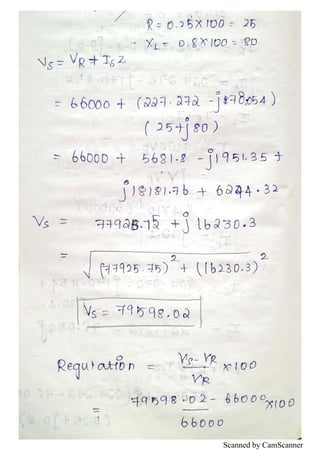 R = 0.25 X 100 = 25
XL = 0.8 X 100 = 80
Vs = VR + Is Z
= 66000 + (227.272 - j178.054)
(25 + j80)
= 66000 + 5681.8 - j1951.35 +
j18181.76 + 6244.32
Vs = 77925.75 + j 16230.3
= √(77925.75)² + (16230.3)²
Vs = 79598.02
Regulation = Vs - VR / VR x 100
= 79598.02 - 66000 / 66000 X100
Scanned by CamScanner